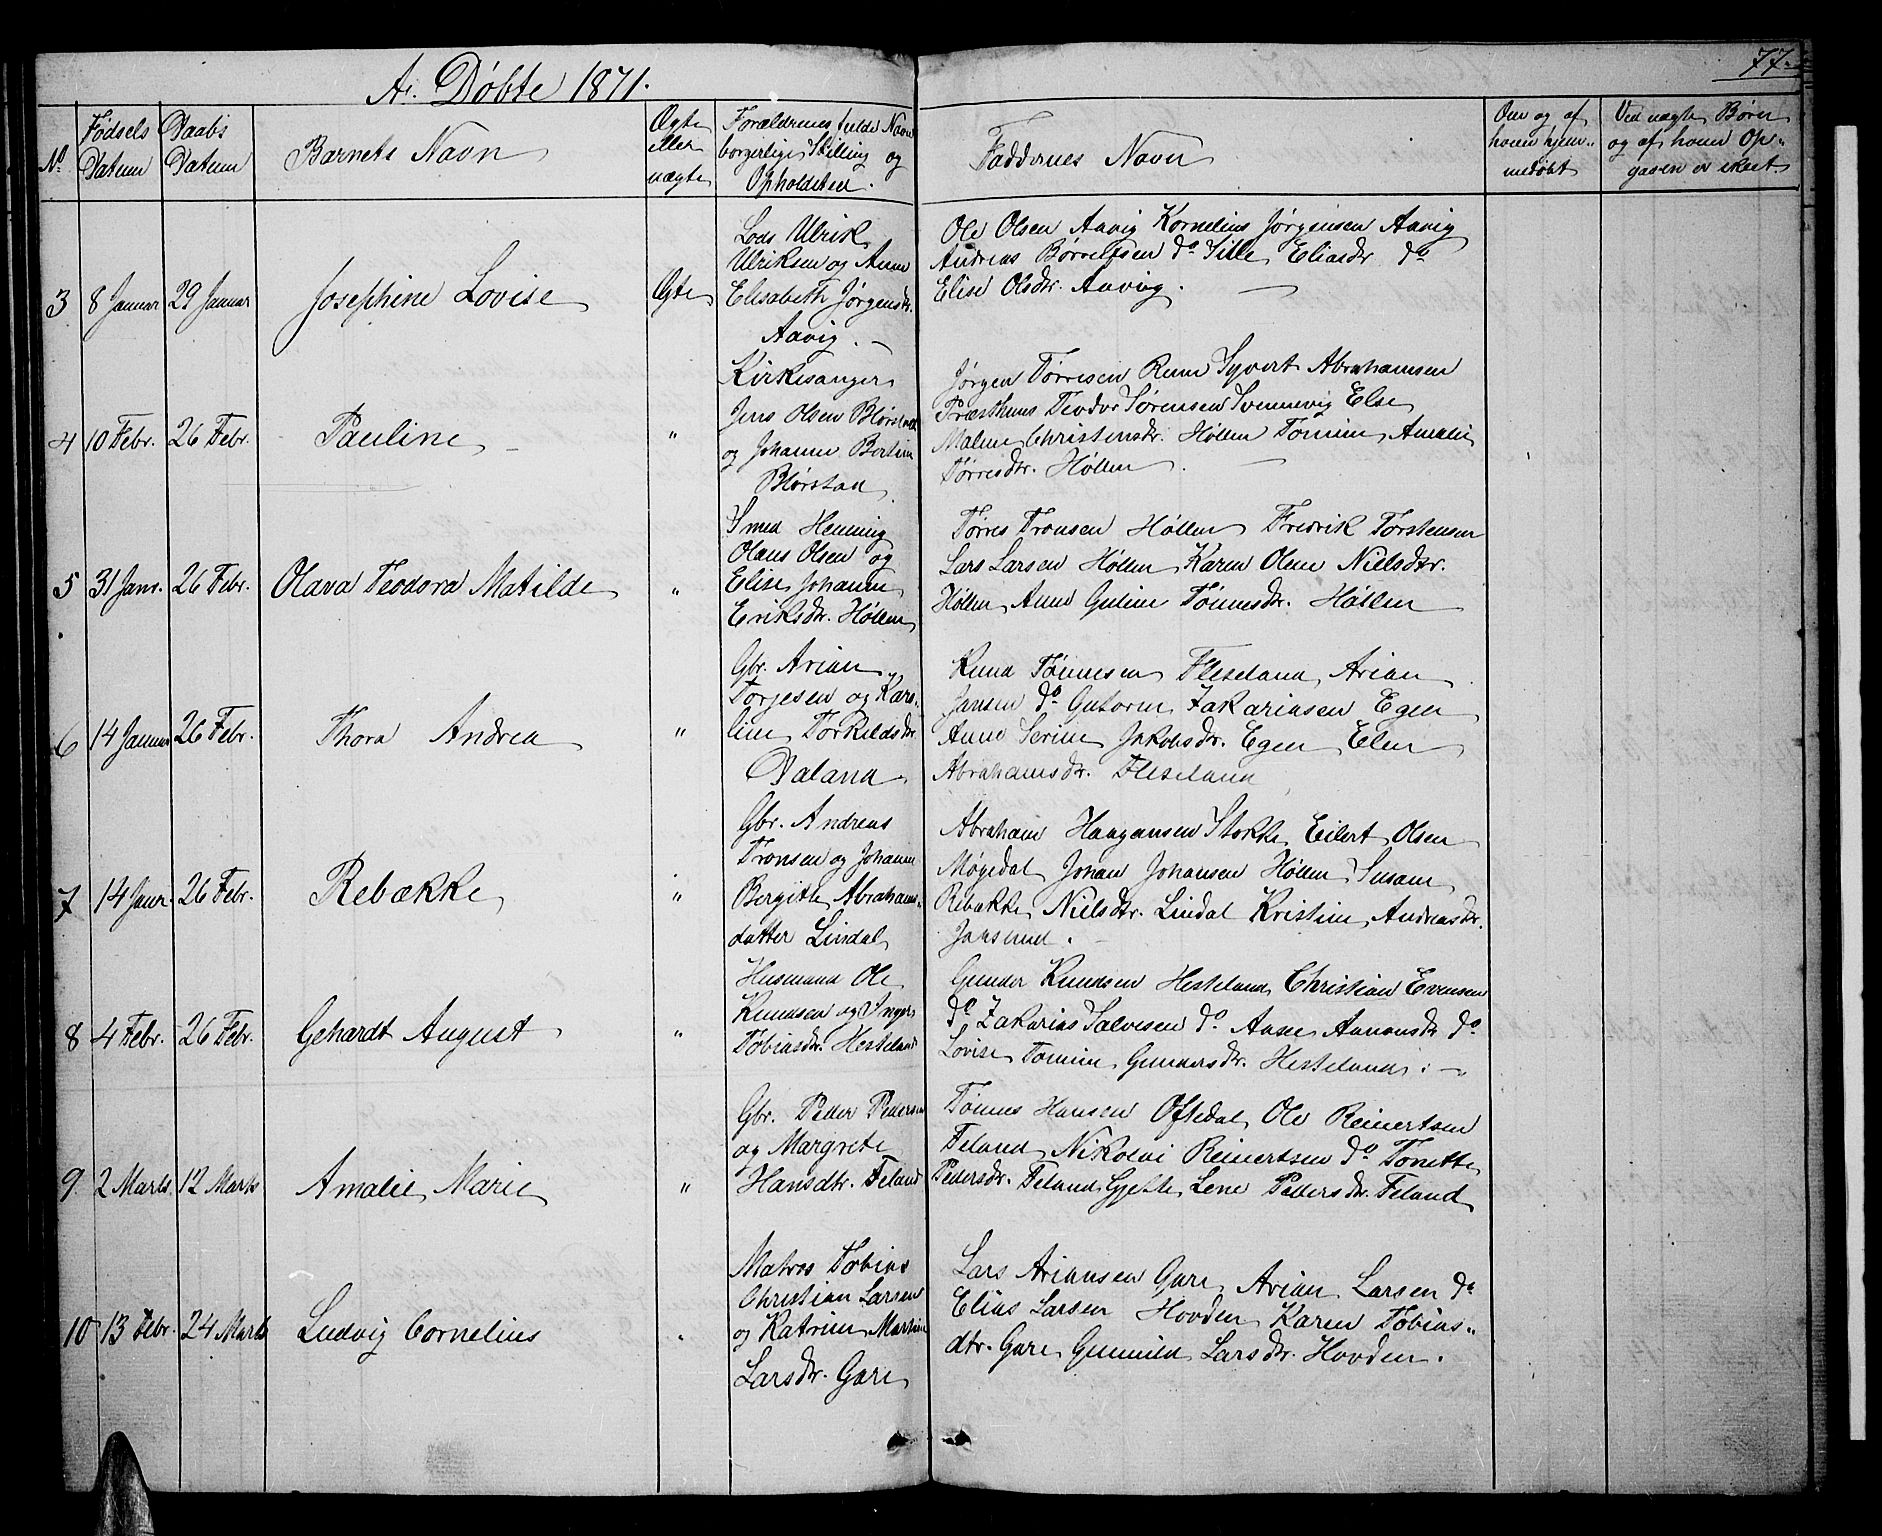 77.
A. Døbte 1871.
No. Fødsels Datum Daabs Datum Barnets Navn Ægte eller uægte Forældrenes fulde Navn borgerlige Stilling og Opholdsted. Faddernes Navn Om og af hvem hjemmedøbt Ved uægte Børn og af hvem Opgaven er skeet.
3 8 Januar 29 Januar Josephine Lovise Ægte
Lods Ulrik
Ulriksen og Anne
Elisabeth Jørgensdr.
Aavig.
Ole Olsen Aavig Kornelius Jørgensen Aavig
Andreas Børrelfsen do Sille Eliasdr do
Elise Olsdr. Aavig.
4 10 Febr. 26 Febr. Pauline "
Kirkesanger
Jens Olsen
og Johanne Bertine
Jørgen Tørresen Syvert Abrahamsen
Præsthuus Teodor Sørensen Svennevig Else
Malene Christensdr. Høllen Tomine Amalie
Tørresdr. Høllen.
5 31 Janr. 26 Febr. Olava Teodora Matilde "
Smed Henning
Olaus Olsen og
Elise Johanne
Eriksdr. Høllen
Tørres Tronsen Høllen Fredrik Torstensen
Lars Larsen Høllen Karen Olene Nielsdr.
Høllen Anne Guline Tønnesdr. Høllen
6 14 Januar 26 Febr. Thora Andrea "
Gbr. Arian
Torjesen og Karo-
line Torkildsdr
Daland
Knud Tønnesen Fleseland Arian
Jansen do Gutorm Zakariasen Egen
Anne Serine Jakobsdr. Egen Elen
Abrahamsdr. Fleseland
7 14 Janr. 26 Febr. Rebække "
Gbr. Andreas
Tronsen og Johanne
Bergitte Abrahams-
datter Lindal
Abraham Haagansen Stokke Eilert Olsen
Møgedal Johan Johansen Høllen Susane
Rebække Nielsdr. Lindal Kristine Andreasdr.
8 4 Febr. 26 Febr. Gehardt August "
Husmand Ole
Knudsen og Inger
Tobiasdr. Hesteland
Gunder Knudsen Hesteland Christian Evensen
do Zakarias Salvesen do Aase Aanonsdr do
Lovise Tomine Gundersdr. Hesteland.
9. 2 Marts. 12 Marts Amalie Marie "
Gbr. Peder Pedersen
og Margrete
Hansdtr. Feland
Tønnes Hansen Oftedal Ole Reinertsen
Feland Nikolai Reinertsen do Tonette
Pedersdr. Feland Gjette Lene Pedersdr. Feland
10 13 Febr. 24 Marts Ludvig Cornelius "
Matros Tobias
Christian Larsen
og Katrine Martine
Larsdr. Gare
Lars Ariansen Gare Arian Larsen do
Elias Larsen Hovden Karen Tobias-
dtr. Gare Gunnild Larsdr. Hovden.